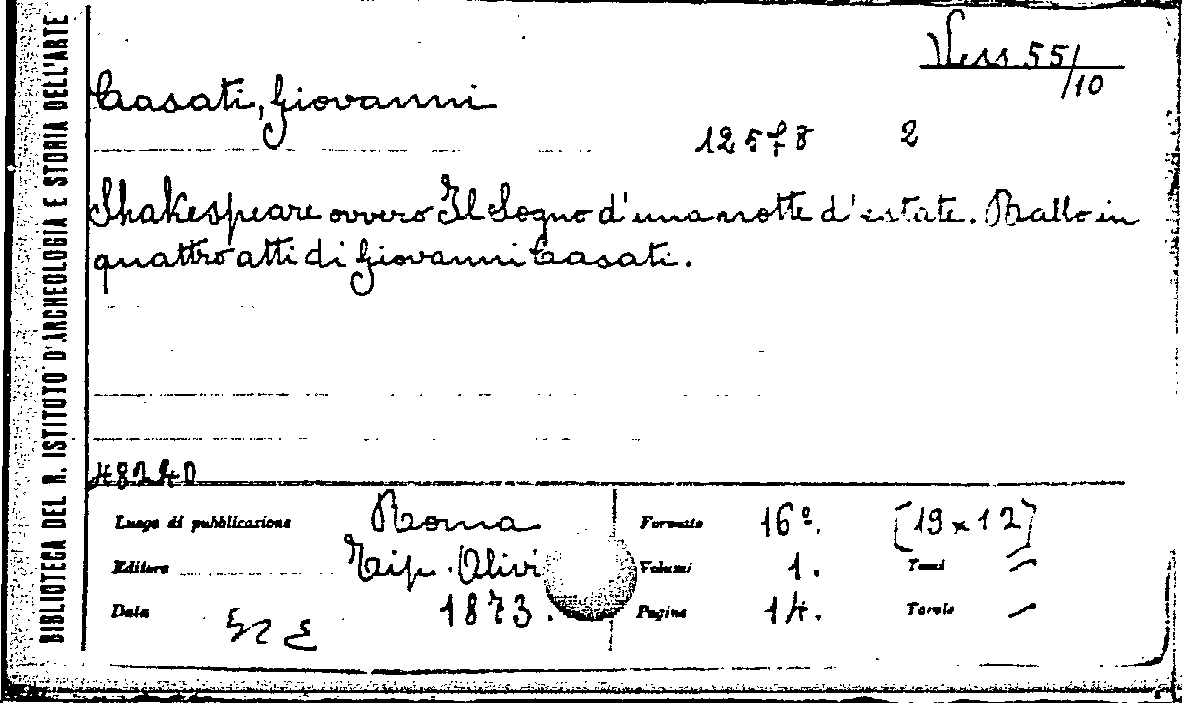 BIBLIOTECA DEL R. ISTITUTO D'ARCHEOLOGIA E STORIA DELL'ARTE
55/10
Casati, Giovanni
12578 2
Shakespeare ovvero Il Sogno d'una notte d'estate. Ballo in
quattro atti di Giovanni Casati.
48240
Luogo di pubblicazione Roma Formato 16º. [19 x 12]
Editore Tip. Olivi Volumi 1. Tomi —
Data 1873. Pagine 14. Tavole —